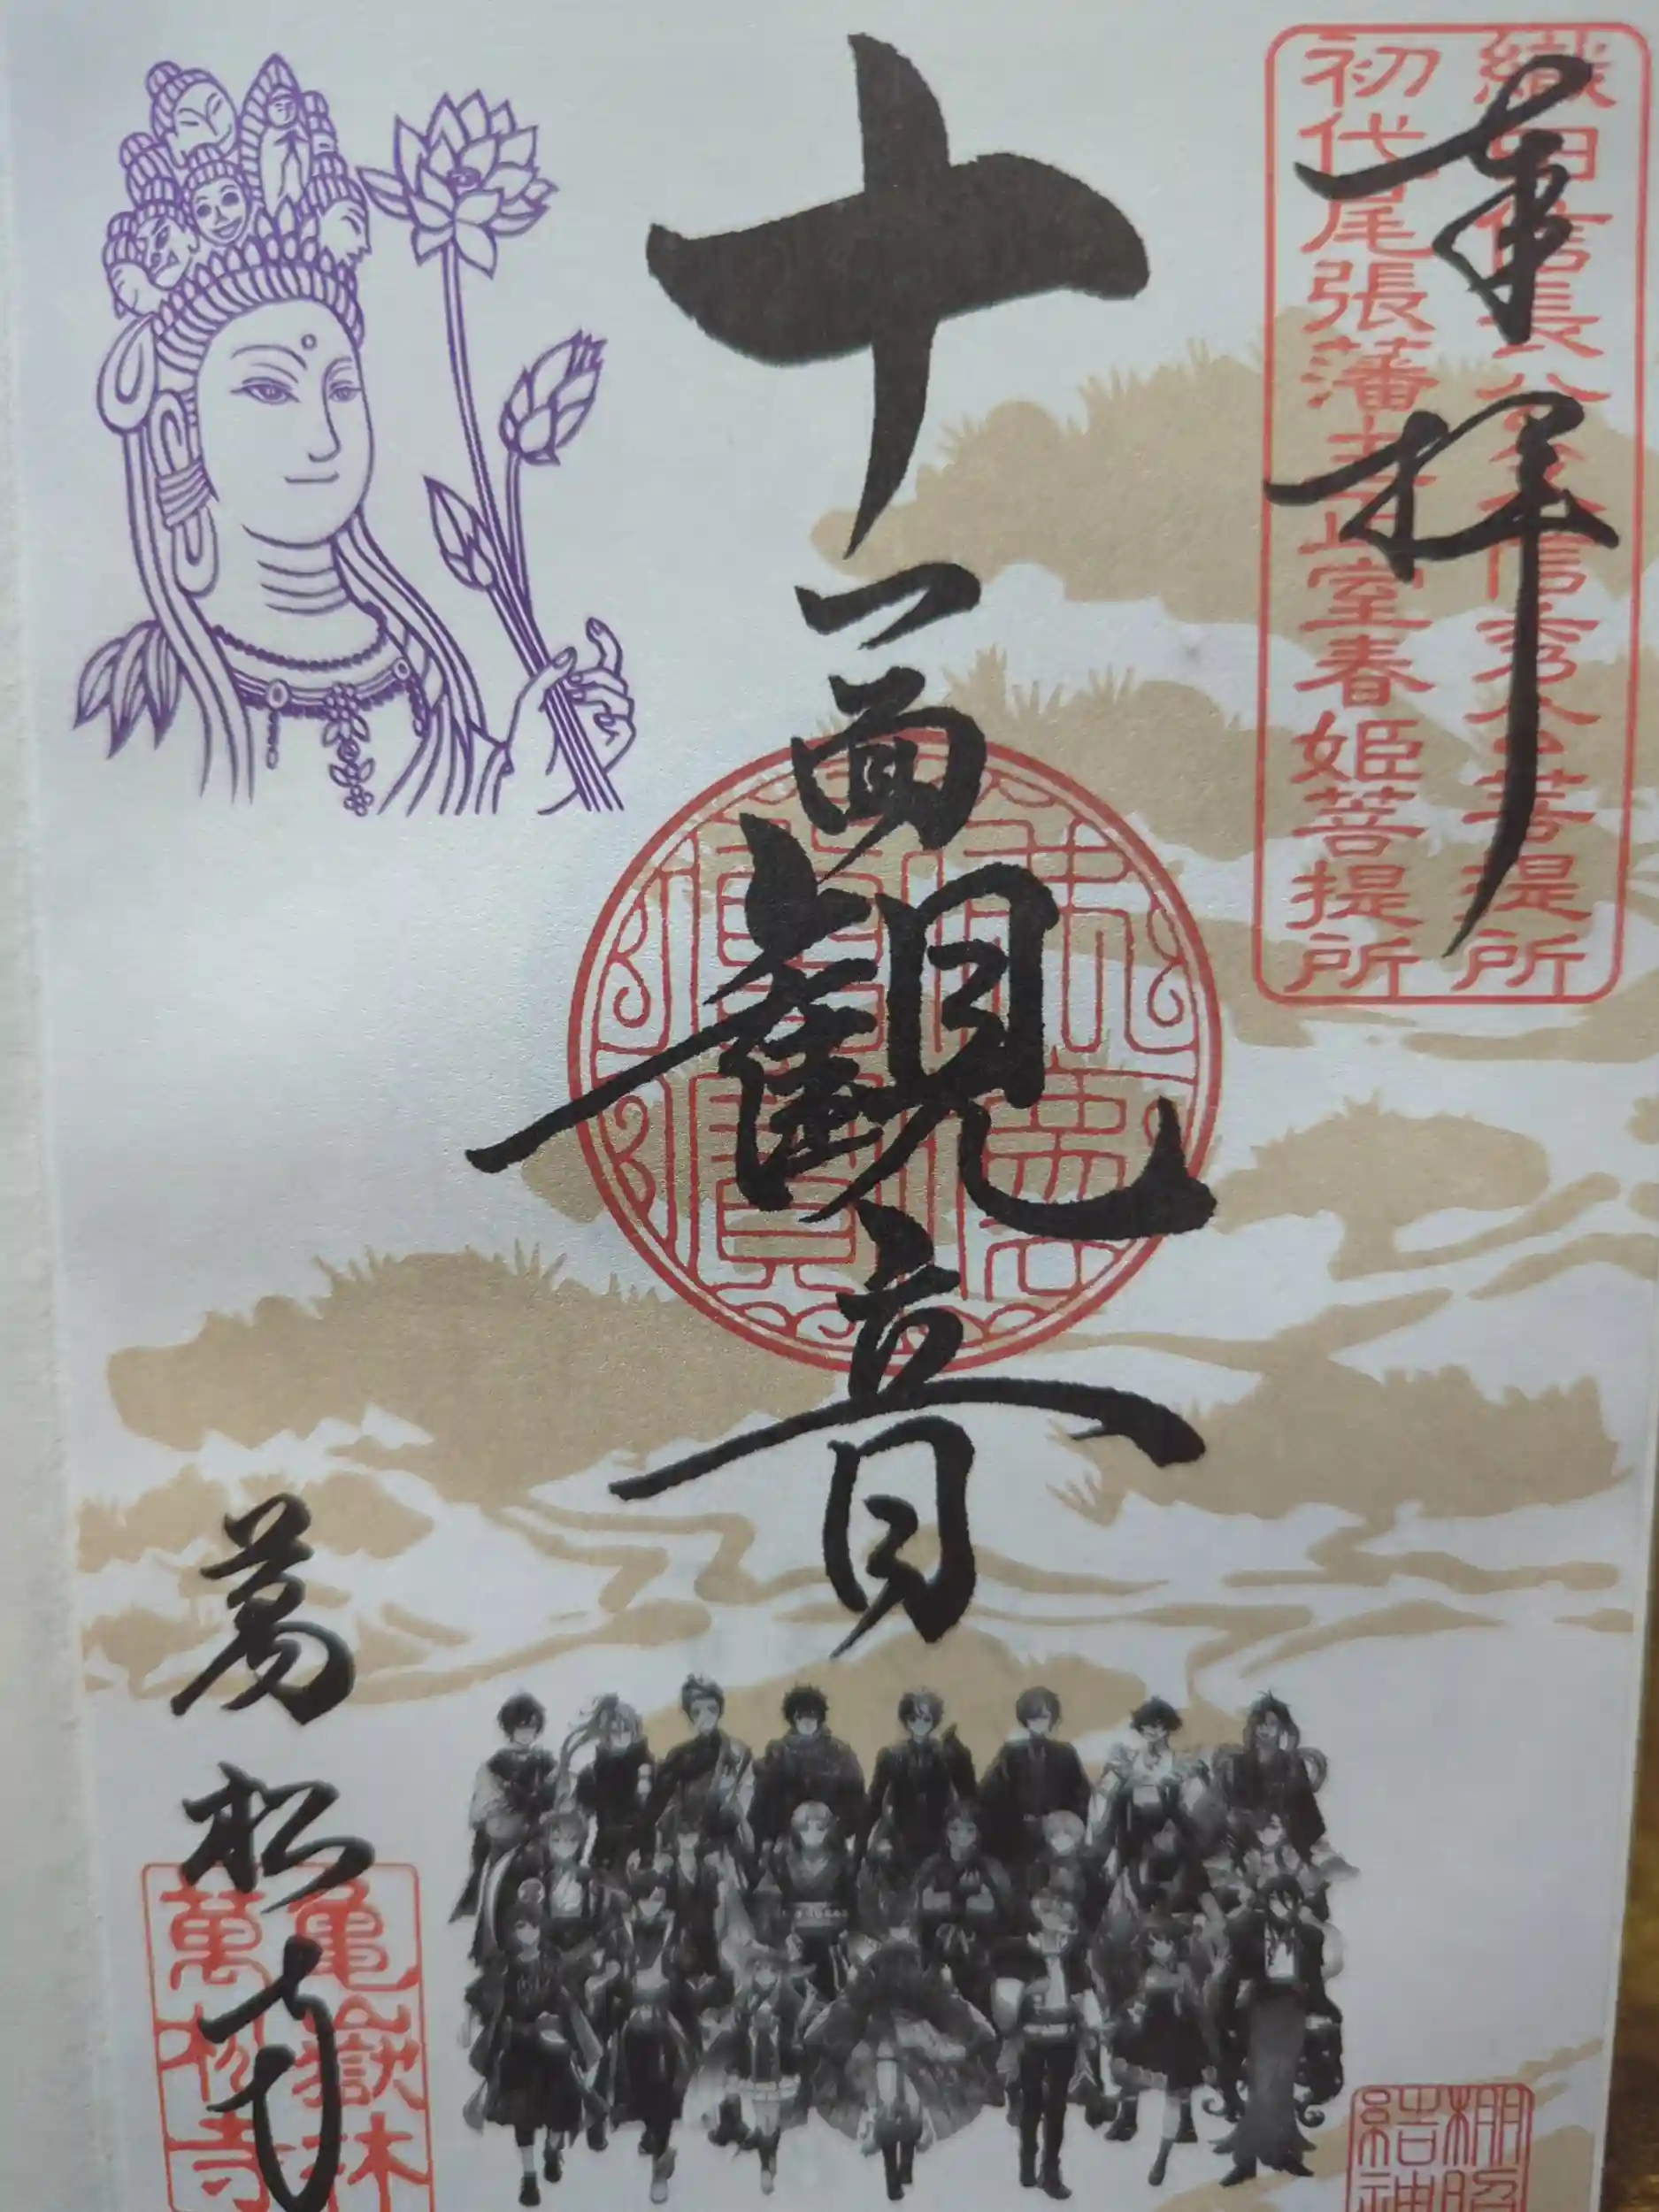 奉拝
織田信長公父信秀公菩提所
初代尾張藩主正室春姫菩提所
十一面観音
佛法僧寶
萬松寺
亀嶽林
萬松寺